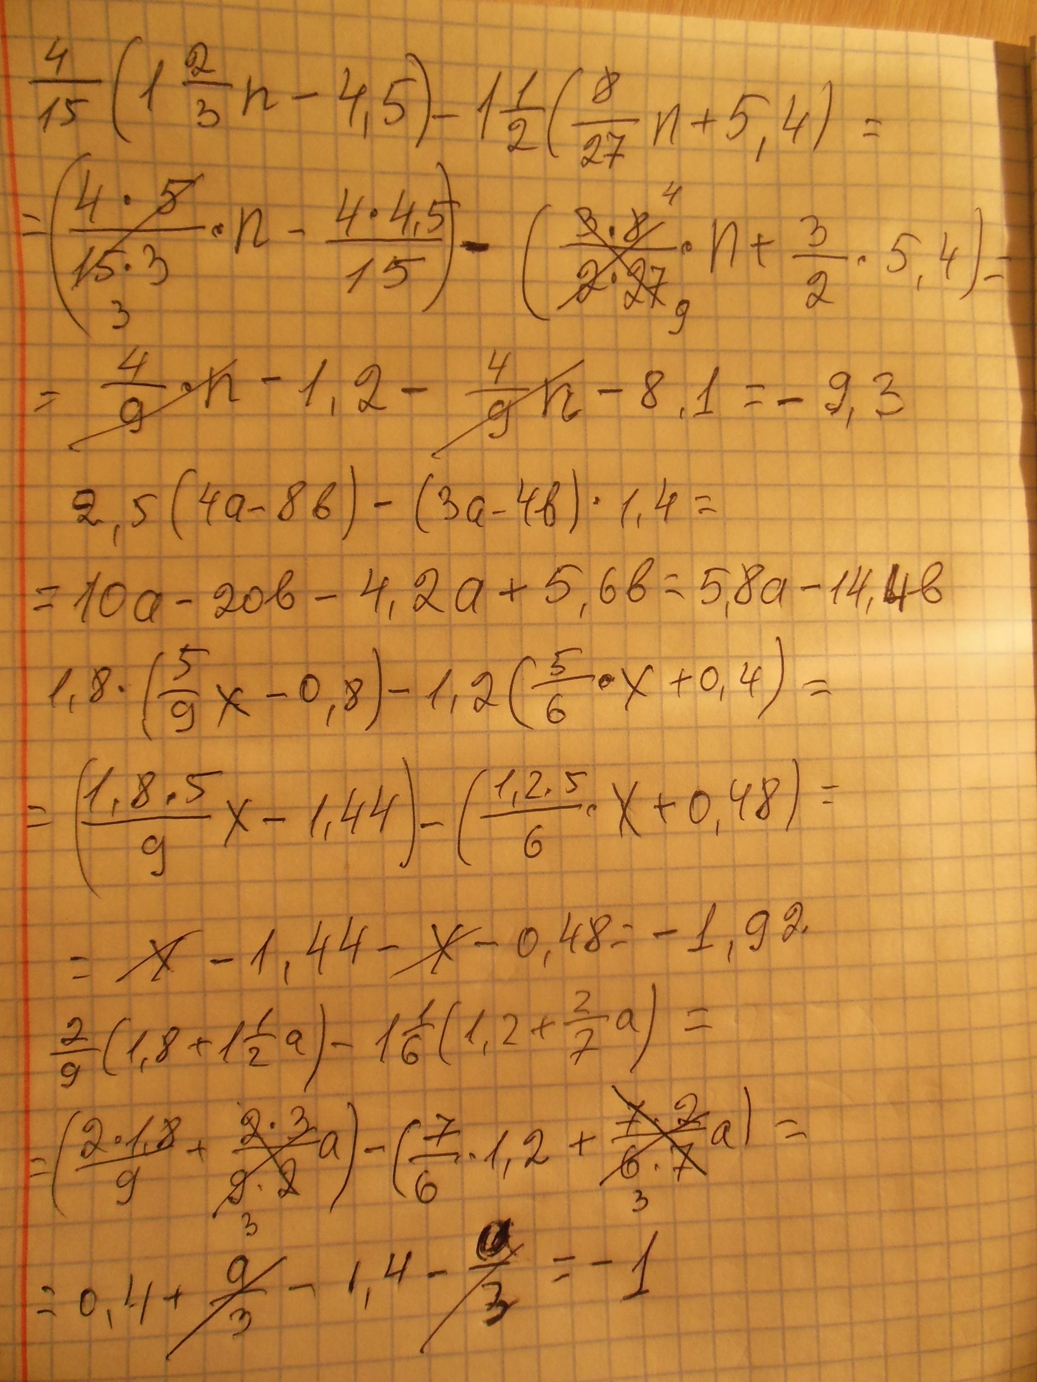 4/15 (1 2/3 n - 4,5) - 1 1/2 (8/27 n + 5,4) =
= (4·5/15·3 · n - 4·4,5/15) - (3·8/2·27 · n + 3/2 · 5,4) =
3 4 9
= 4/9 · n - 1,2 - 4/9 n - 8,1 = - 9,3
2,5 (4a - 8b) - (3a - 4b) · 1,4 =
= 10a - 20b - 4,2a + 5,6b = 5,8a - 14,4b
1,8 · (5/9 x - 0,8) - 1,2 (5/6 · x + 0,4) =
= (1,8·5/9 x - 1,44) - (1,2·5/6 · x + 0,48) =
= x - 1,44 - x - 0,48 = - 1,92
2/9 (1,8 + 1 1/2 a) - 1 1/6 (1,2 + 2/7 a) =
= (2·1,8/9 + 2·3/9·2 a) - (7/6 · 1,2 + 7·2/6·7 a) =
3 3
= 0,4 + a/3 - 1,4 - a/3 = - 1